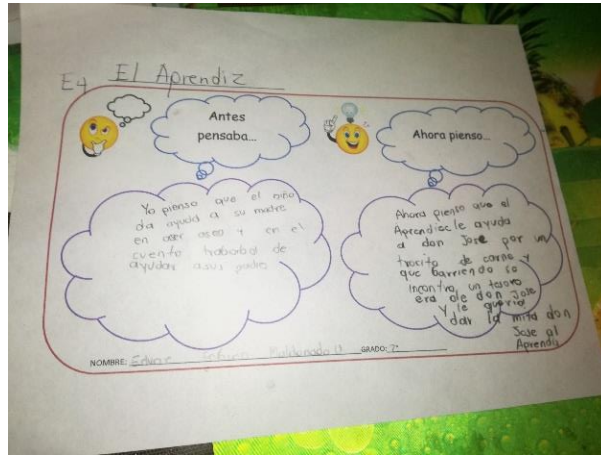 E4 El Aprendiz
Antes
pensaba...
Yo pienso que el niño
dia ayuda a su madre
en aser aseo y en el
cuento trababa de
ayudar a sus padres
Ahora pienso...
Ahora pienso que el
Aprendiz le ayuda
a don Jose por un
trocito de carne y
que barriendo se
incontra un tesoro
era de don Jose
Y le queria
dar la mita don
Jose al
Aprendiz
NOMBRE: Maldonado GRADO: 2°